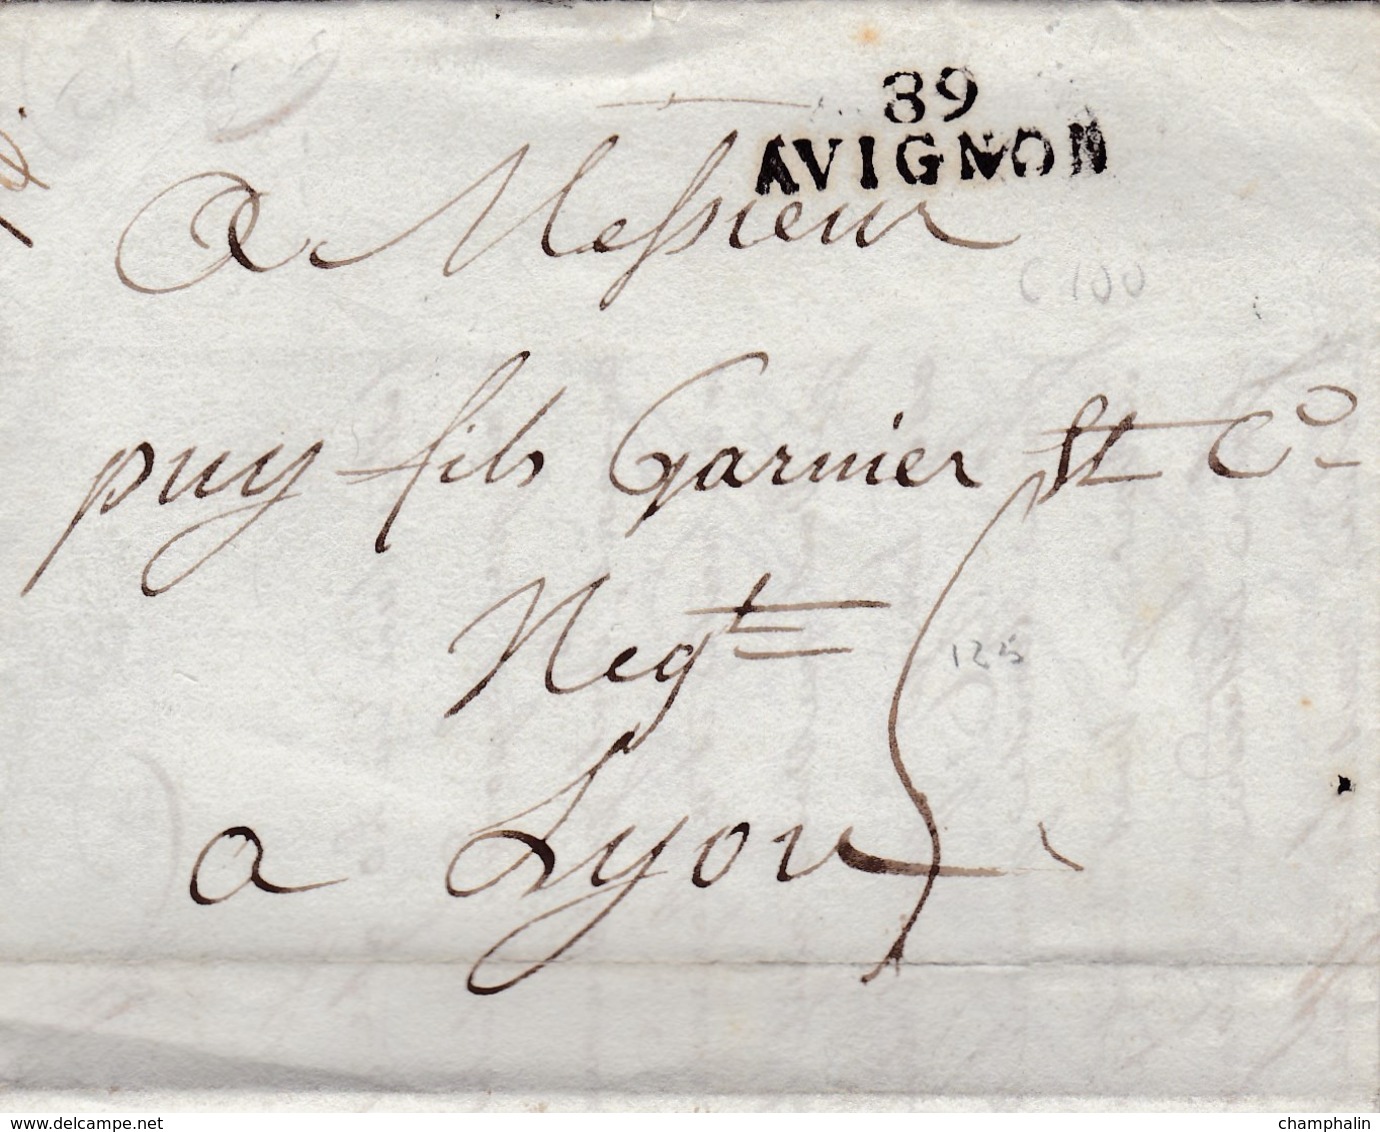 89
AVIGNON
A Messieur
C 100
puy fils Garnier et Co
Negts
125
a Lyon
www.delcampe.net
champhalin